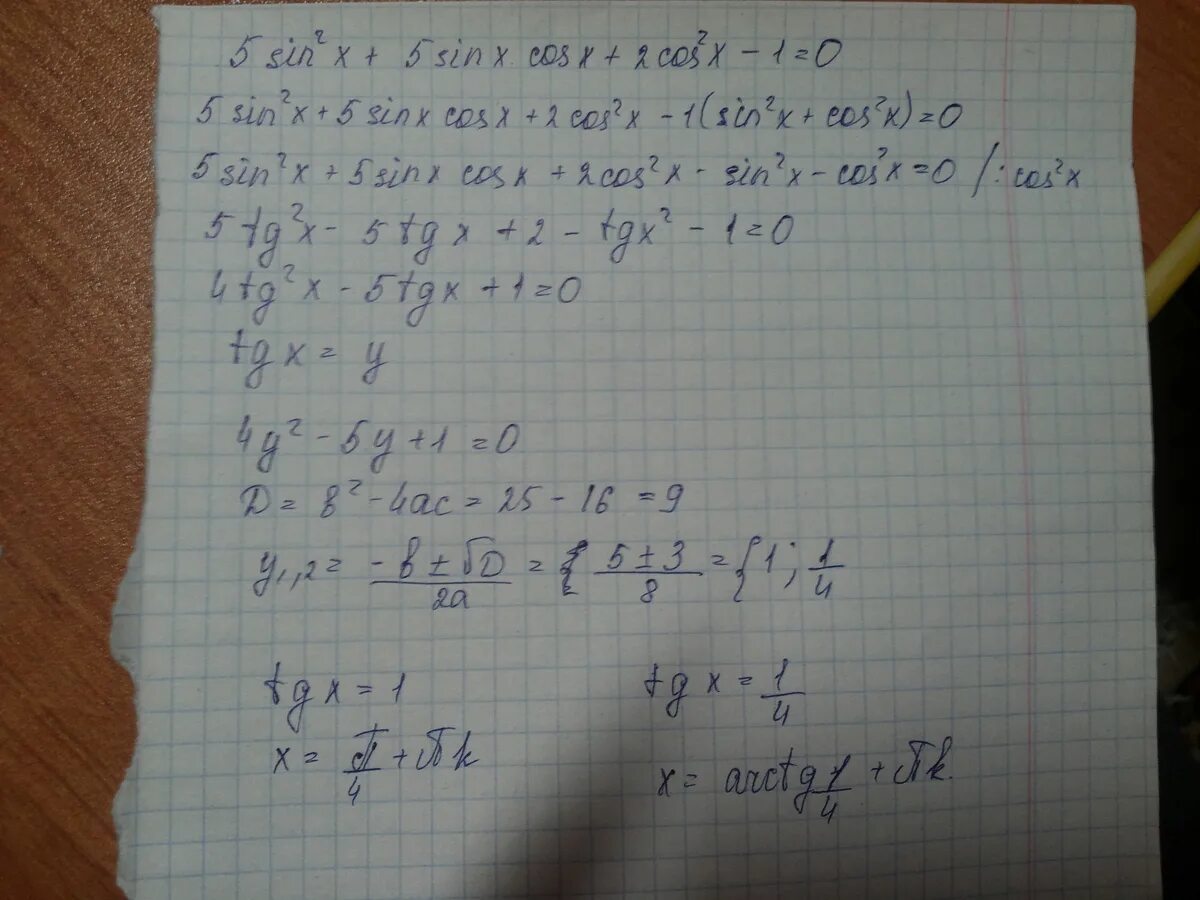 5 sin²x + 5 sinx cosx + 2cos²x - 1 = 0
5 sin²x + 5 sinx cosx + 2 cos²x - 1(sin²x + cos²x) = 0
5 sin²x + 5 sinx cosx + 2cos²x - sin²x - cos²x = 0 /: cos²x
5 tg²x - 5 tgx + 2 - tgx² - 1 = 0
4tg²x - 5tgx + 1 = 0
tgx = y
4y² - 5y + 1 = 0
D = в² - 4ac = 25 - 16 = 9
y₁,₂ = (-в ± √D)/2a = { (5 ± 3)/8 = { 1; 1/4
tgx = 1 tgx = 1/4
x = π/4 + πk x = arctg 1/4 + πk.